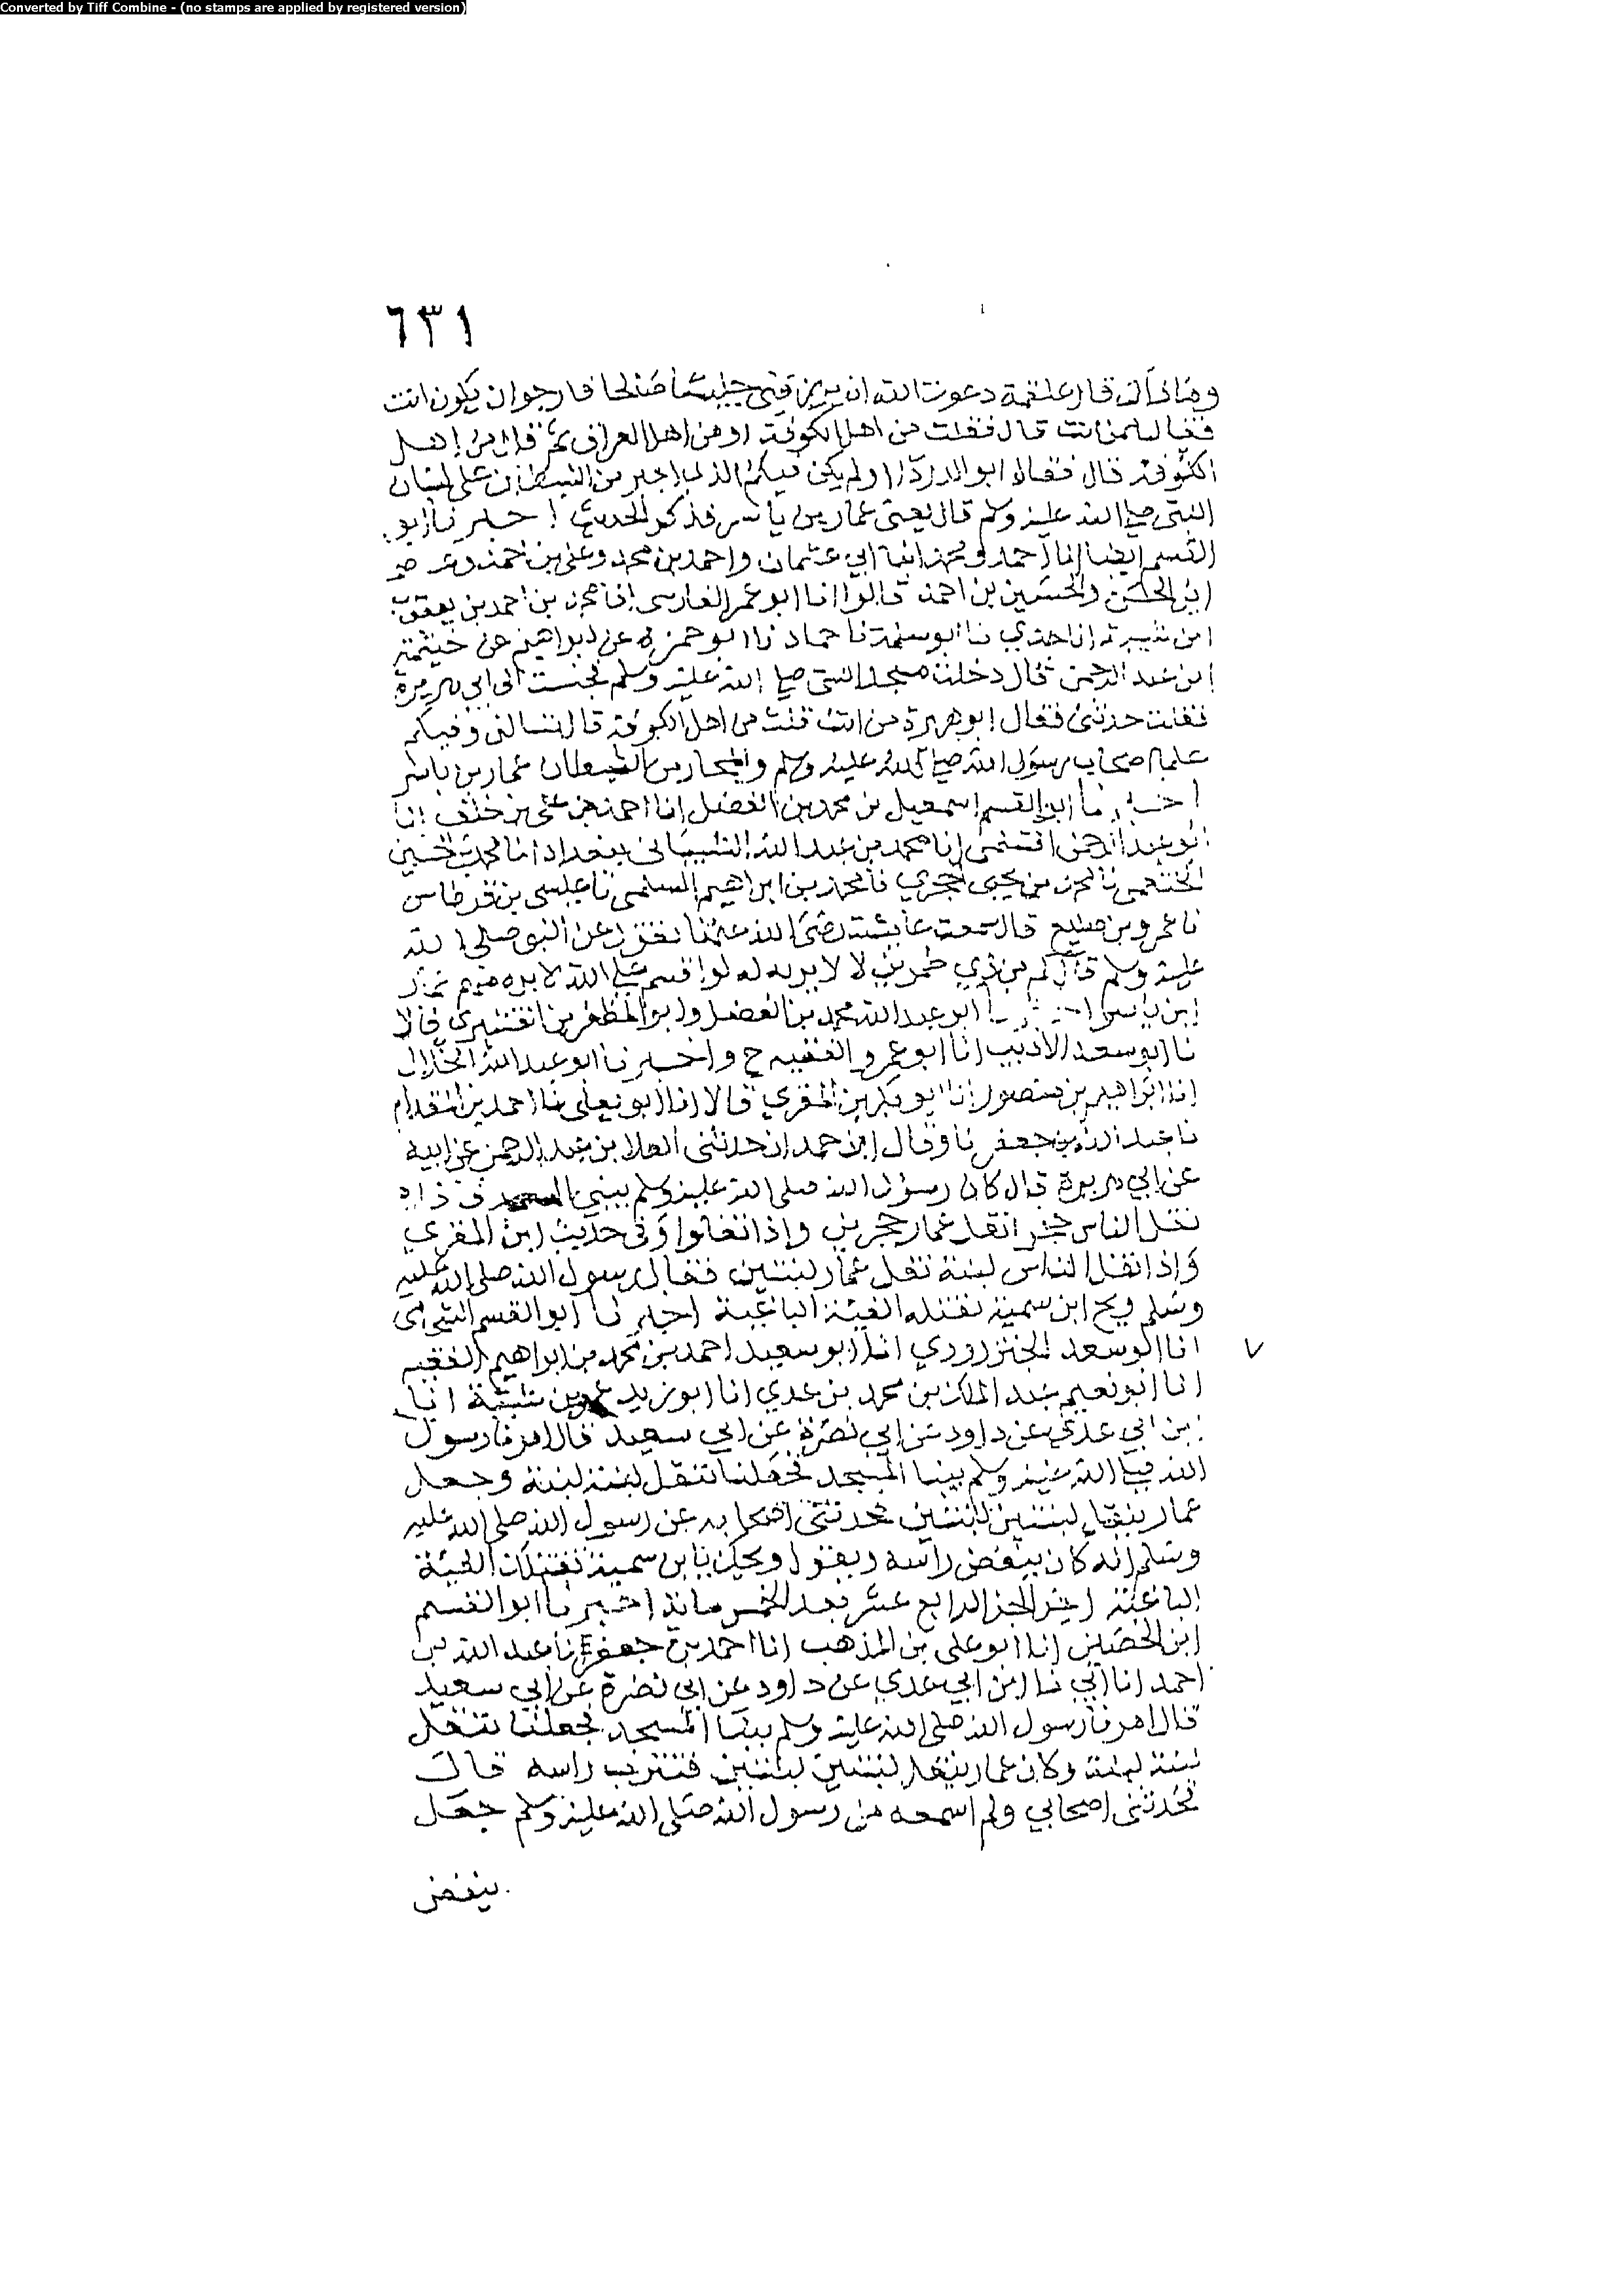 Converted by Tiff Combine - (no stamps are applied by registered version)
٦٣١
وما ذاك قال علقمة دعوت الله ان يرزقني جليسا صالحا فارجوان يكون انت
فقال ممن انت قال فقلت من اهل الكوفة اومن اهل العراق ثم من اهل
الكوفة قال فقال ابوالدردا اولم يكن فيكم الذي اجير من الشيطان على لسان
النبي صلى الله عليه وسلم قال يعني عمار بن ياسر فذكر الحديث اخبرنا ابو
القسم ايضا انا احمد ومحمد ابنا ابي عثمان واحمد بن محمد وعلي بن احمد
ابن الحسن والحسين بن احمد قالوا انا ابو عمر الفارسي انا محمد بن احمد بن يعقوب
ابن شيبة انا جدي نا ابو سلمة نا حماد نا ابو حمزة عن ابراهيم عن خيثمة
ابن عبد الرحمن قال دخلت مسجد النبي صلى الله عليه وسلم فجلست الى ابي هريرة
فقلت حدثني فقال ابو هريرة من انت قلت من اهل الكوفة قال تسالني وفيكم
علما اصحاب رسول الله صلى الله عليه وسلم والمجار من الشيطان عمار بن ياسر
اخبرنا ابو القسم اسمعيل بن محمد بن الفضل انا احمد بن علي بن خلف انا
ابو عبد الرحمن السلمي انا محمد بن عبد الله الشيباني ببغداد انا محمد بن الحسين
الخثعمي نا محمد بن يحيى الحجري نا محمد بن ابراهيم السلمي نا عيسى بن قرطاس
نا عمرو بن صليع قال سمعت عائشة رضي الله عنها تقول عن النبي صلى الله
عليه وسلم قال كم من ذي طمرين لا يوبه له لو اقسم على الله لابره منهم عمار
ابن ياسر اخبرنا ابو عبد الله محمد بن الفضل وابو المظفر بن القشيري قالا
نا ابو سعد الاديب انا ابو عمرو الفقيه ح واخبرنا ابو عبد الله الخلال
انا ابراهيم بن منصور انا ابو بكر بن المقري قالا انا ابو يعلى نا احمد بن المقدام
نا عبد الله بن جعفر نا وقال ابن حمدان حدثني العلا بن عبد الرحمن عن ابيه
عن ابي هريرة قال كان رسول الله صلى الله عليه وسلم يبني المسجد فاذا
نقل الناس حجرا نقل عمار حجرين واذا نقلوا وفي حديث ابن المقري
واذا نقل الناس لبنة نقل عمار لبنتين فقال رسول الله صلى الله عليه
وسلم ويح ابن سمية تقتله الفية الباغية اخبرنا ابو القسم الشحامي
انا ابو سعد الجنزرودي انا ابو سعيد احمد بن محمد بن ابراهيم الفقيه
انا ابو نعيم عبد الملك بن محمد بن عدي انا ابو زيد عمر بن شبة انا
ابن ابي عدي عن داود عن ابي نضرة عن ابي سعيد قال امرنا رسول
الله صلى الله عليه وسلم ببنا المسجد فجعلنا ننقل لبنة لبنة وجعل
عمار ينقل لبنتين لبنتين فحدثني اصحابه عن رسول الله صلى الله عليه
وسلم انه كان ينفض راسه ويقول ويحك يا بن سمية تقتلك الفئة
الباغية اخر الجز الرابع عشر بعد الخمس مائة اخبرنا ابو القسم
ابن الحصين انا ابو علي بن المذهب انا احمد بن جعفر نا عبد الله بن
احمد انا ابي نا ابن ابي عدي عن داود عن ابي نضرة عن ابي سعيد
قال امرنا رسول الله صلى الله عليه وسلم ببنا المسجد فجعلنا ننقل
لبنة لبنة وكان عمار ينقل لبنتين لبنتين فتترب راسه قال
فحدثني اصحابي ولم اسمعه من رسول الله صلى الله عليه وسلم جعل
ينفض